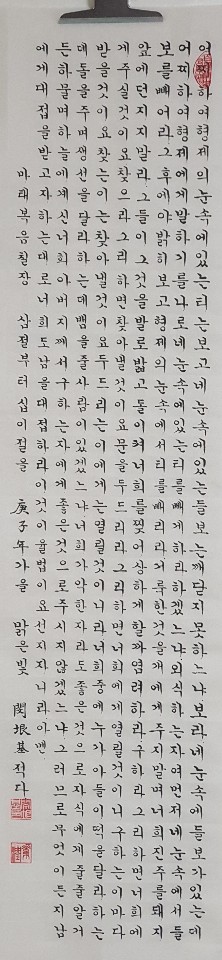 어찌하여형제의눈속에있는티는보고네눈속에있는들보는깨닫지못하느냐보라네눈속에들보가있는데
어찌하여형제에게말하기를나로네눈속에있는티를빼게하라하겠느냐외식하는자여먼저네눈속에서들
보를빼어라그후에야밝히보고형제의눈속에서티를빼리라거룩한것을개에게주지말며너희진주를돼지
앞에던지지말라그들이그것을발로밟고돌이켜너희를찢어상하게할까염려하라구하라그리하면너희에
게주실것이요찾으라그리하면찾아낼것이요문을두드리라그리하면너희에게열릴것이니구하는이마다
받을것이요찾는이는찾아낼것이요두드리는이에게는열릴것이니라너희중에누가아들이떡을달라하는
데돌을주며생선을달라하는데뱀을줄사람이있겠느냐너희가악한자라도좋은것으로자식에게줄줄알거
든하물며하늘에계신너희아버지께서구하는자에게좋은것으로주시지않겠느냐그러므로무엇이든지남
에게대접을받고자하는대로너희도남을대접하라이것이율법이요선지자니라아멘
마태복음칠장 삼절부터십이절을 庚子年가을 맑은빛 閔垠基적다